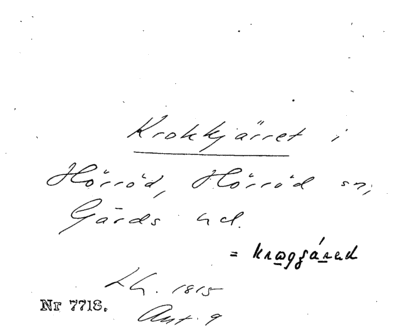 Krokkjärret i
Hörröd, Hörröd sn;
Gärds hd.
= krogjáred
Lh. 1815
Nr 7718. Akt. 9